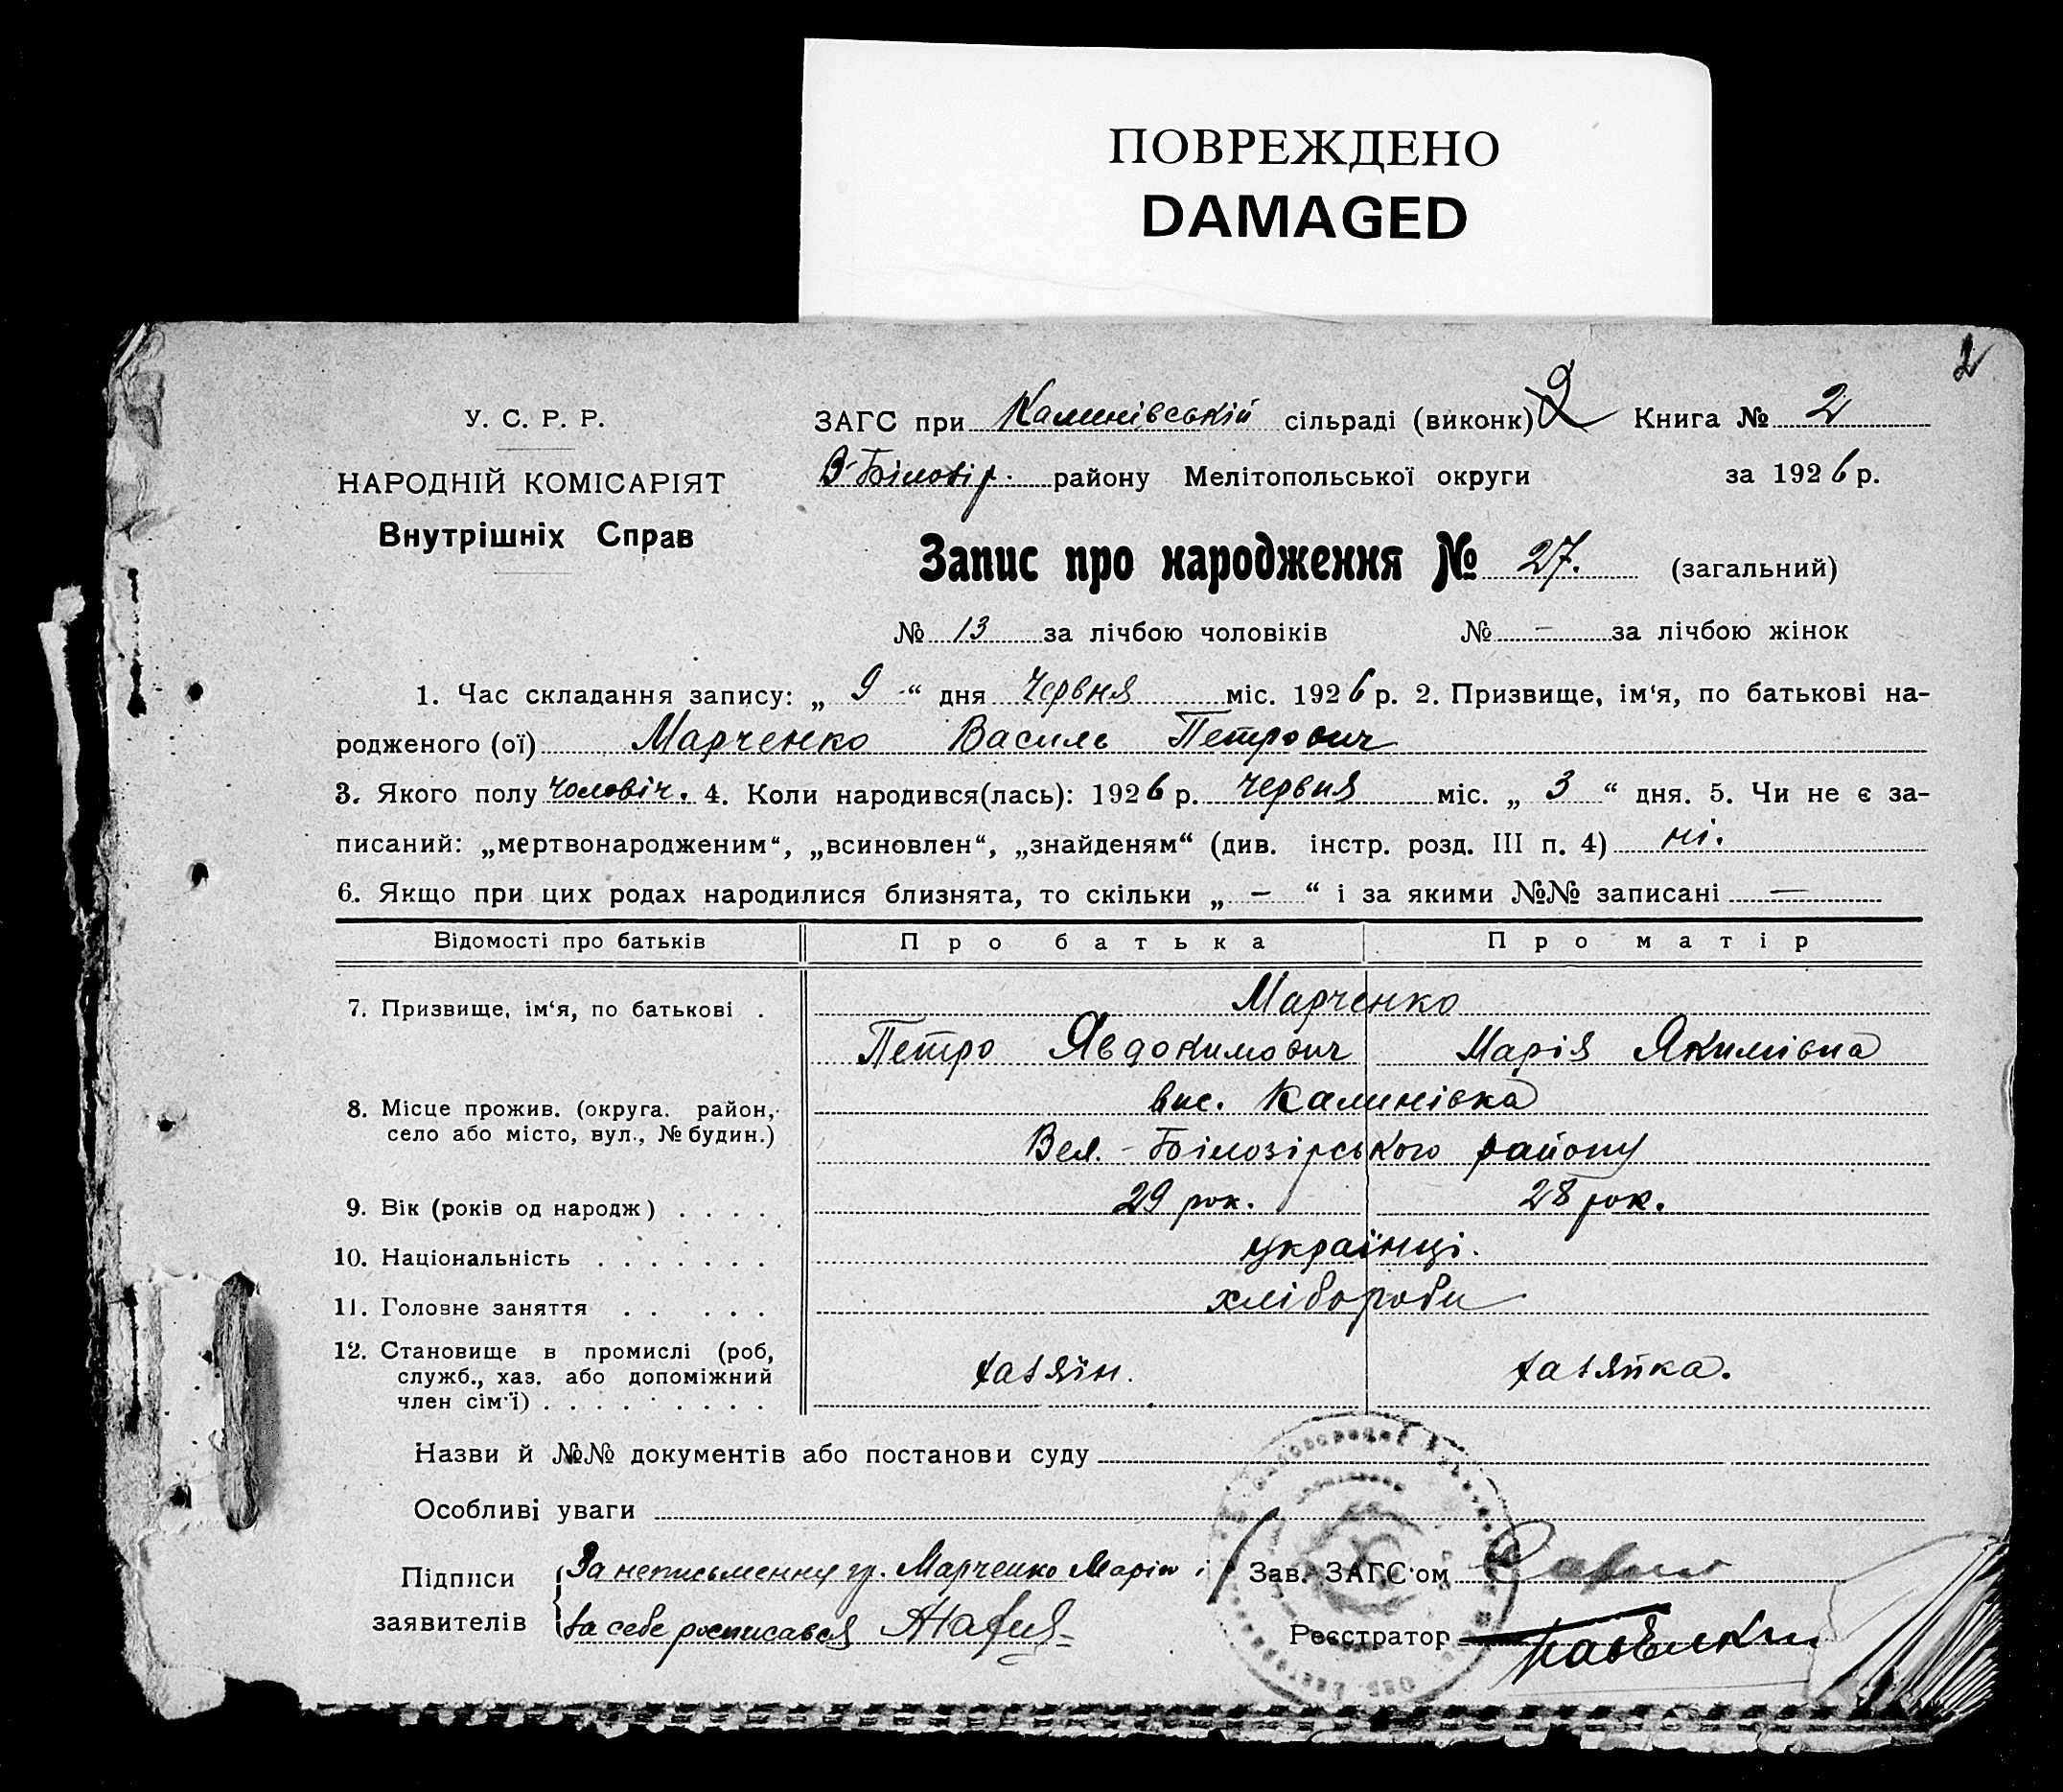 ПОВРЕЖДЕНО
DAMAGED
2
У. С. Р. Р.
НАРОДНІЙ КОМІСАРІЯТ
Внутрішніх Справ
ЗАГС при Калинівській сільраді (виконк) 2 Книга № 2
В-Білозір. району Мелітопольської округи за 1926 р.
Запис про народження № 27. (загальний)
№ 13 за лічбою чоловіків № – за лічбою жінок
1. Час складання запису: „ 9 “ дня Червня міс. 1926 р. 2. Призвище, ім‘я, по батькові на-
родженого (ої) Марченко Василь Петрович
3. Якого полу чоловіч. 4. Коли народився(лась): 1926 р. червня міс. „ 3 “ дня. 5. Чи не є за-
писаний: „мертвонародженим“, „всиновлен“, „знайденям“ (див. інстр. розд. III п. 4) ні.
6. Якщо при цих родах народилися близнята, то скільки „ – “ і за якими №№ записані —
Відомості про батьків Про батька Про матір
7. Призвище, ім‘я, по батькові . Марченко
Петро Явдокимович Марія Якимівна
8. Місце прожив. (округа. район, вис. Калинівка
село або місто, вул., № будин.) Вел.-Білозірського району
9. Вік (років од народж) . . . . 29 рок. 28 рок.
10. Національність . . . . . . . українці.
11. Головне заняття . . . . . хлібороби
12. Становище в промислі (роб,
служб., хаз. або допоміжний хазяїн. хазяйка.
член сім‘ї) . . . . . . . . .
Назви й №№ документів або постанови суду
Особливі уваги
Підписи За неписьменну гр. Марченко Марію і Зав. ЗАГС‘ом
заявителів за себе росписався
Реєстратор